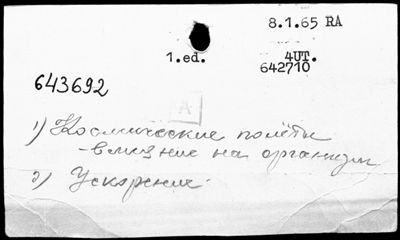 8.1.65 RA
1.ed.
4UT.
642710
643692
A
1) Космические полёты
-влияние на организм
2) Ускорение